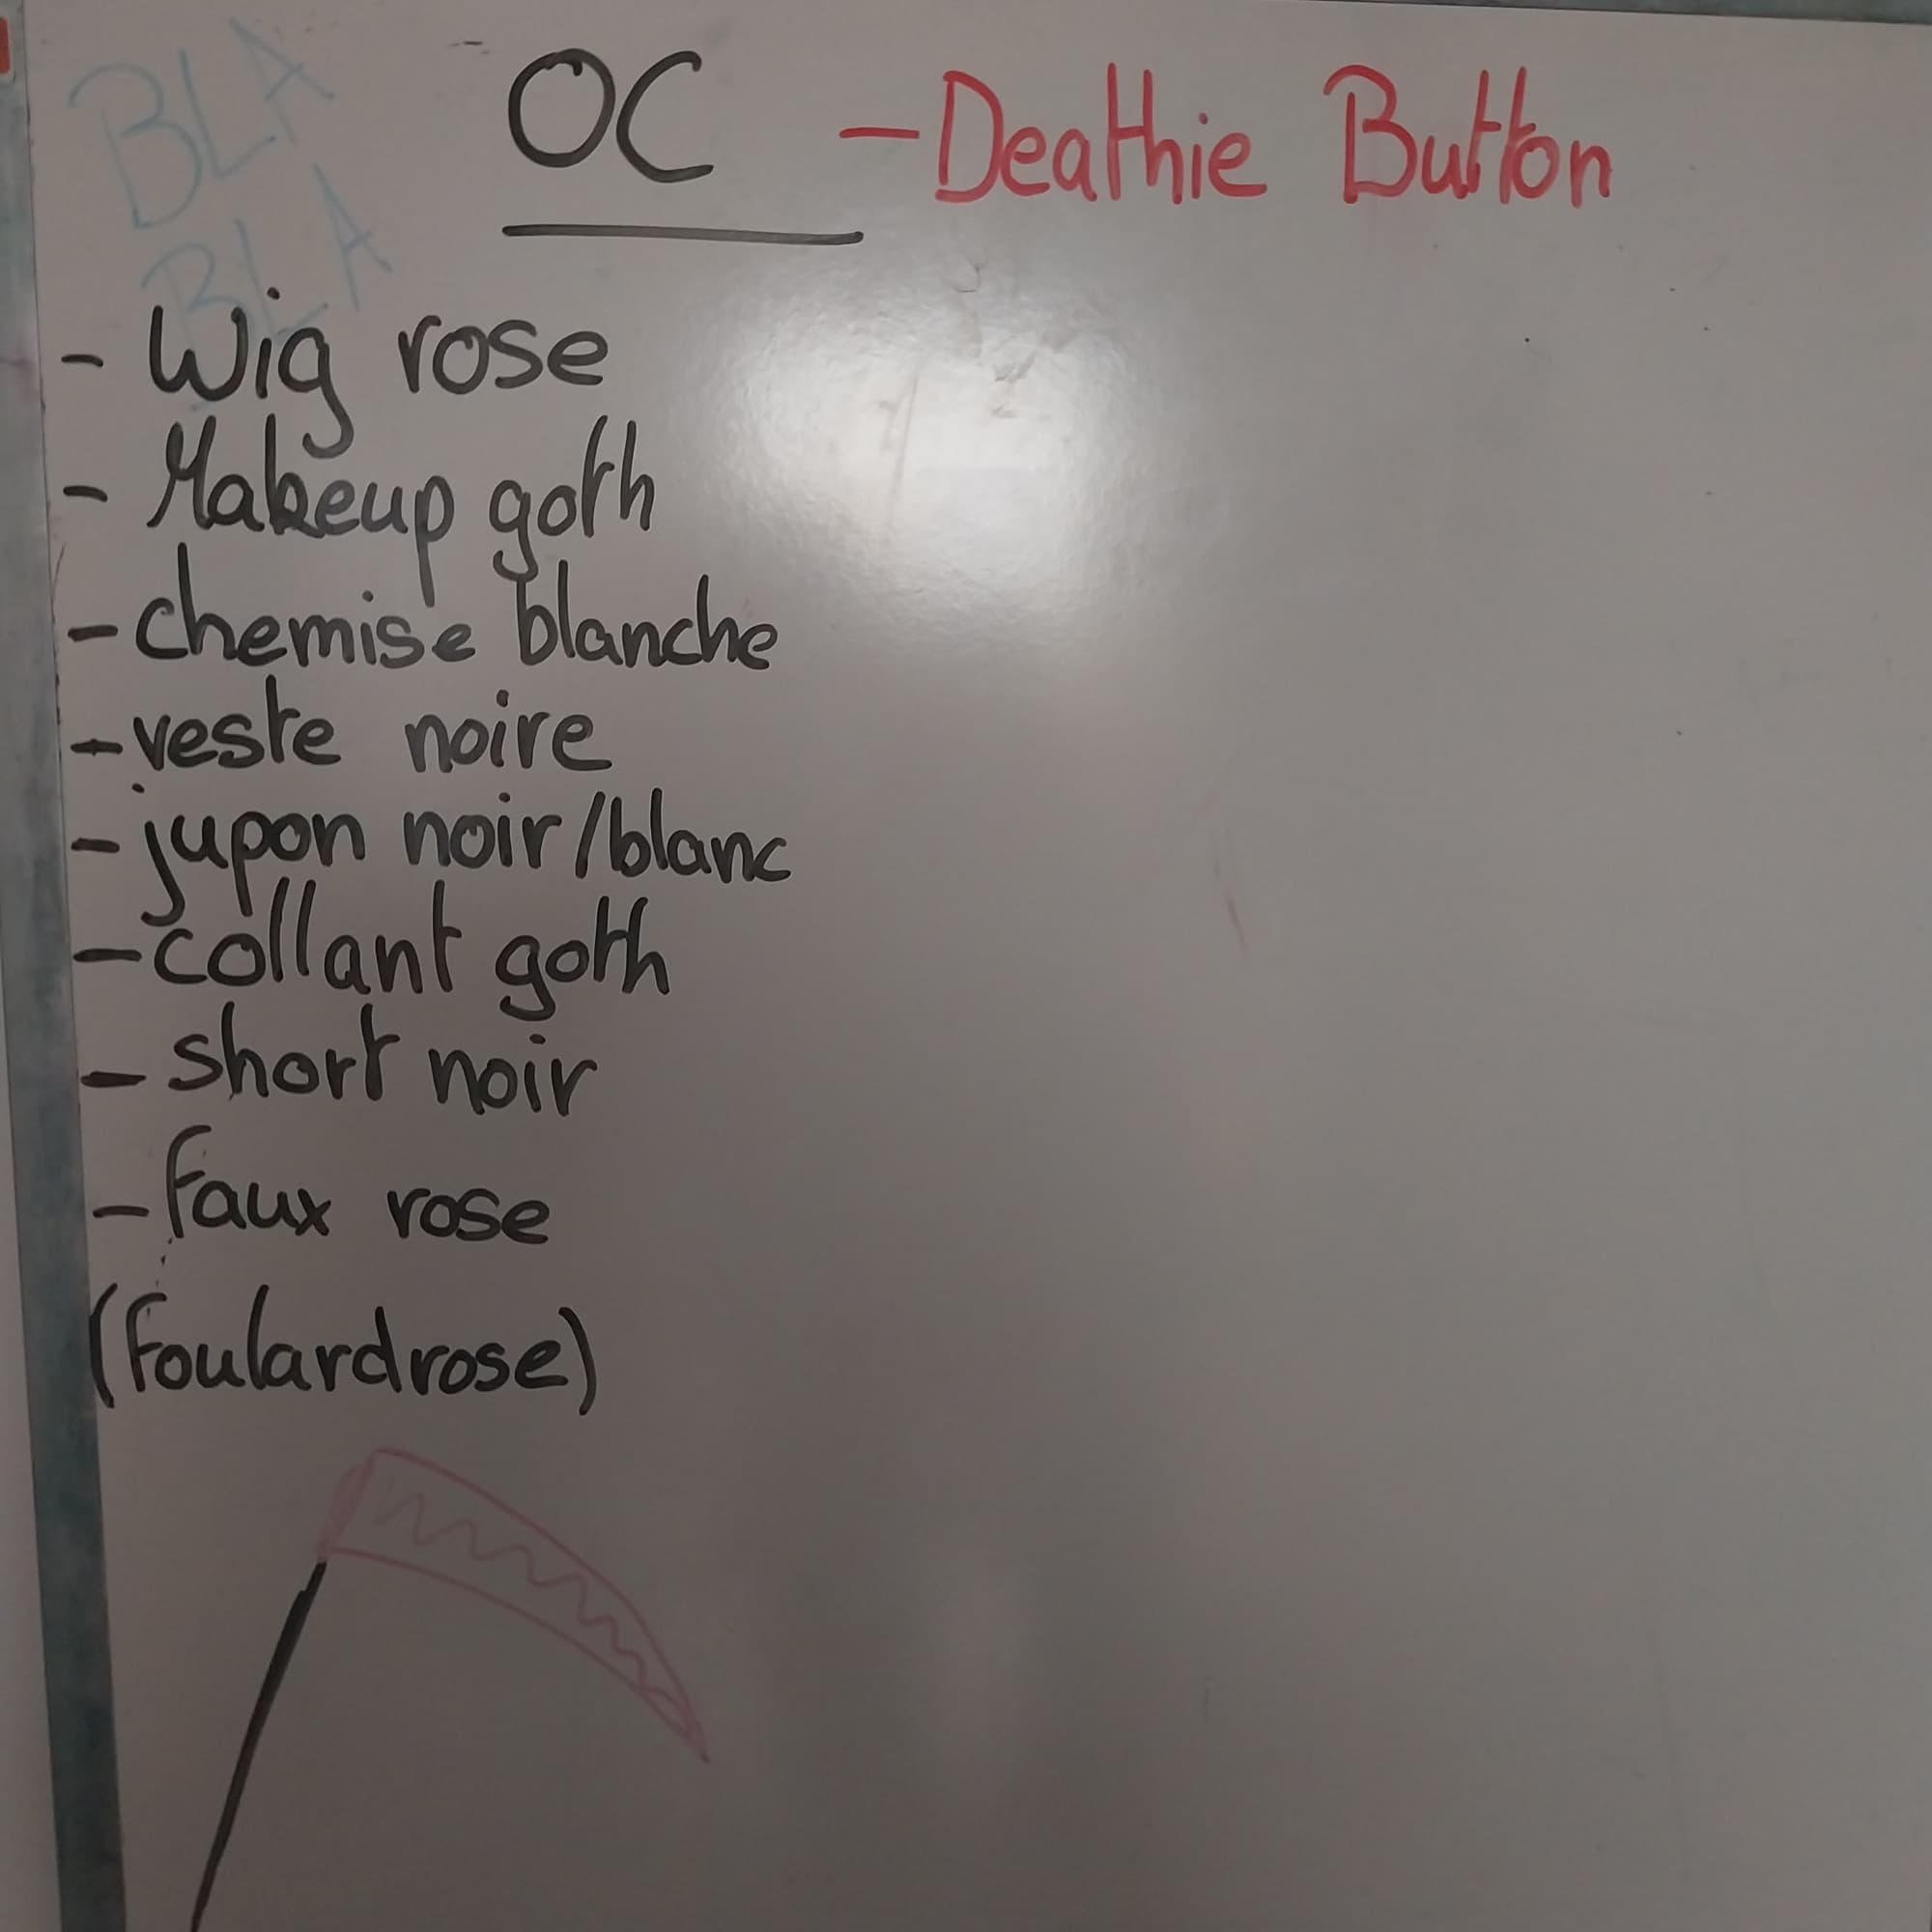 BLA
BLA
OC - Deathie Button
- Wig rose
- Makeup goth
- chemise blanche
- veste noire
- jupon noir/blanc
- collant goth
- short noir
- faux rose
(foulard rose)